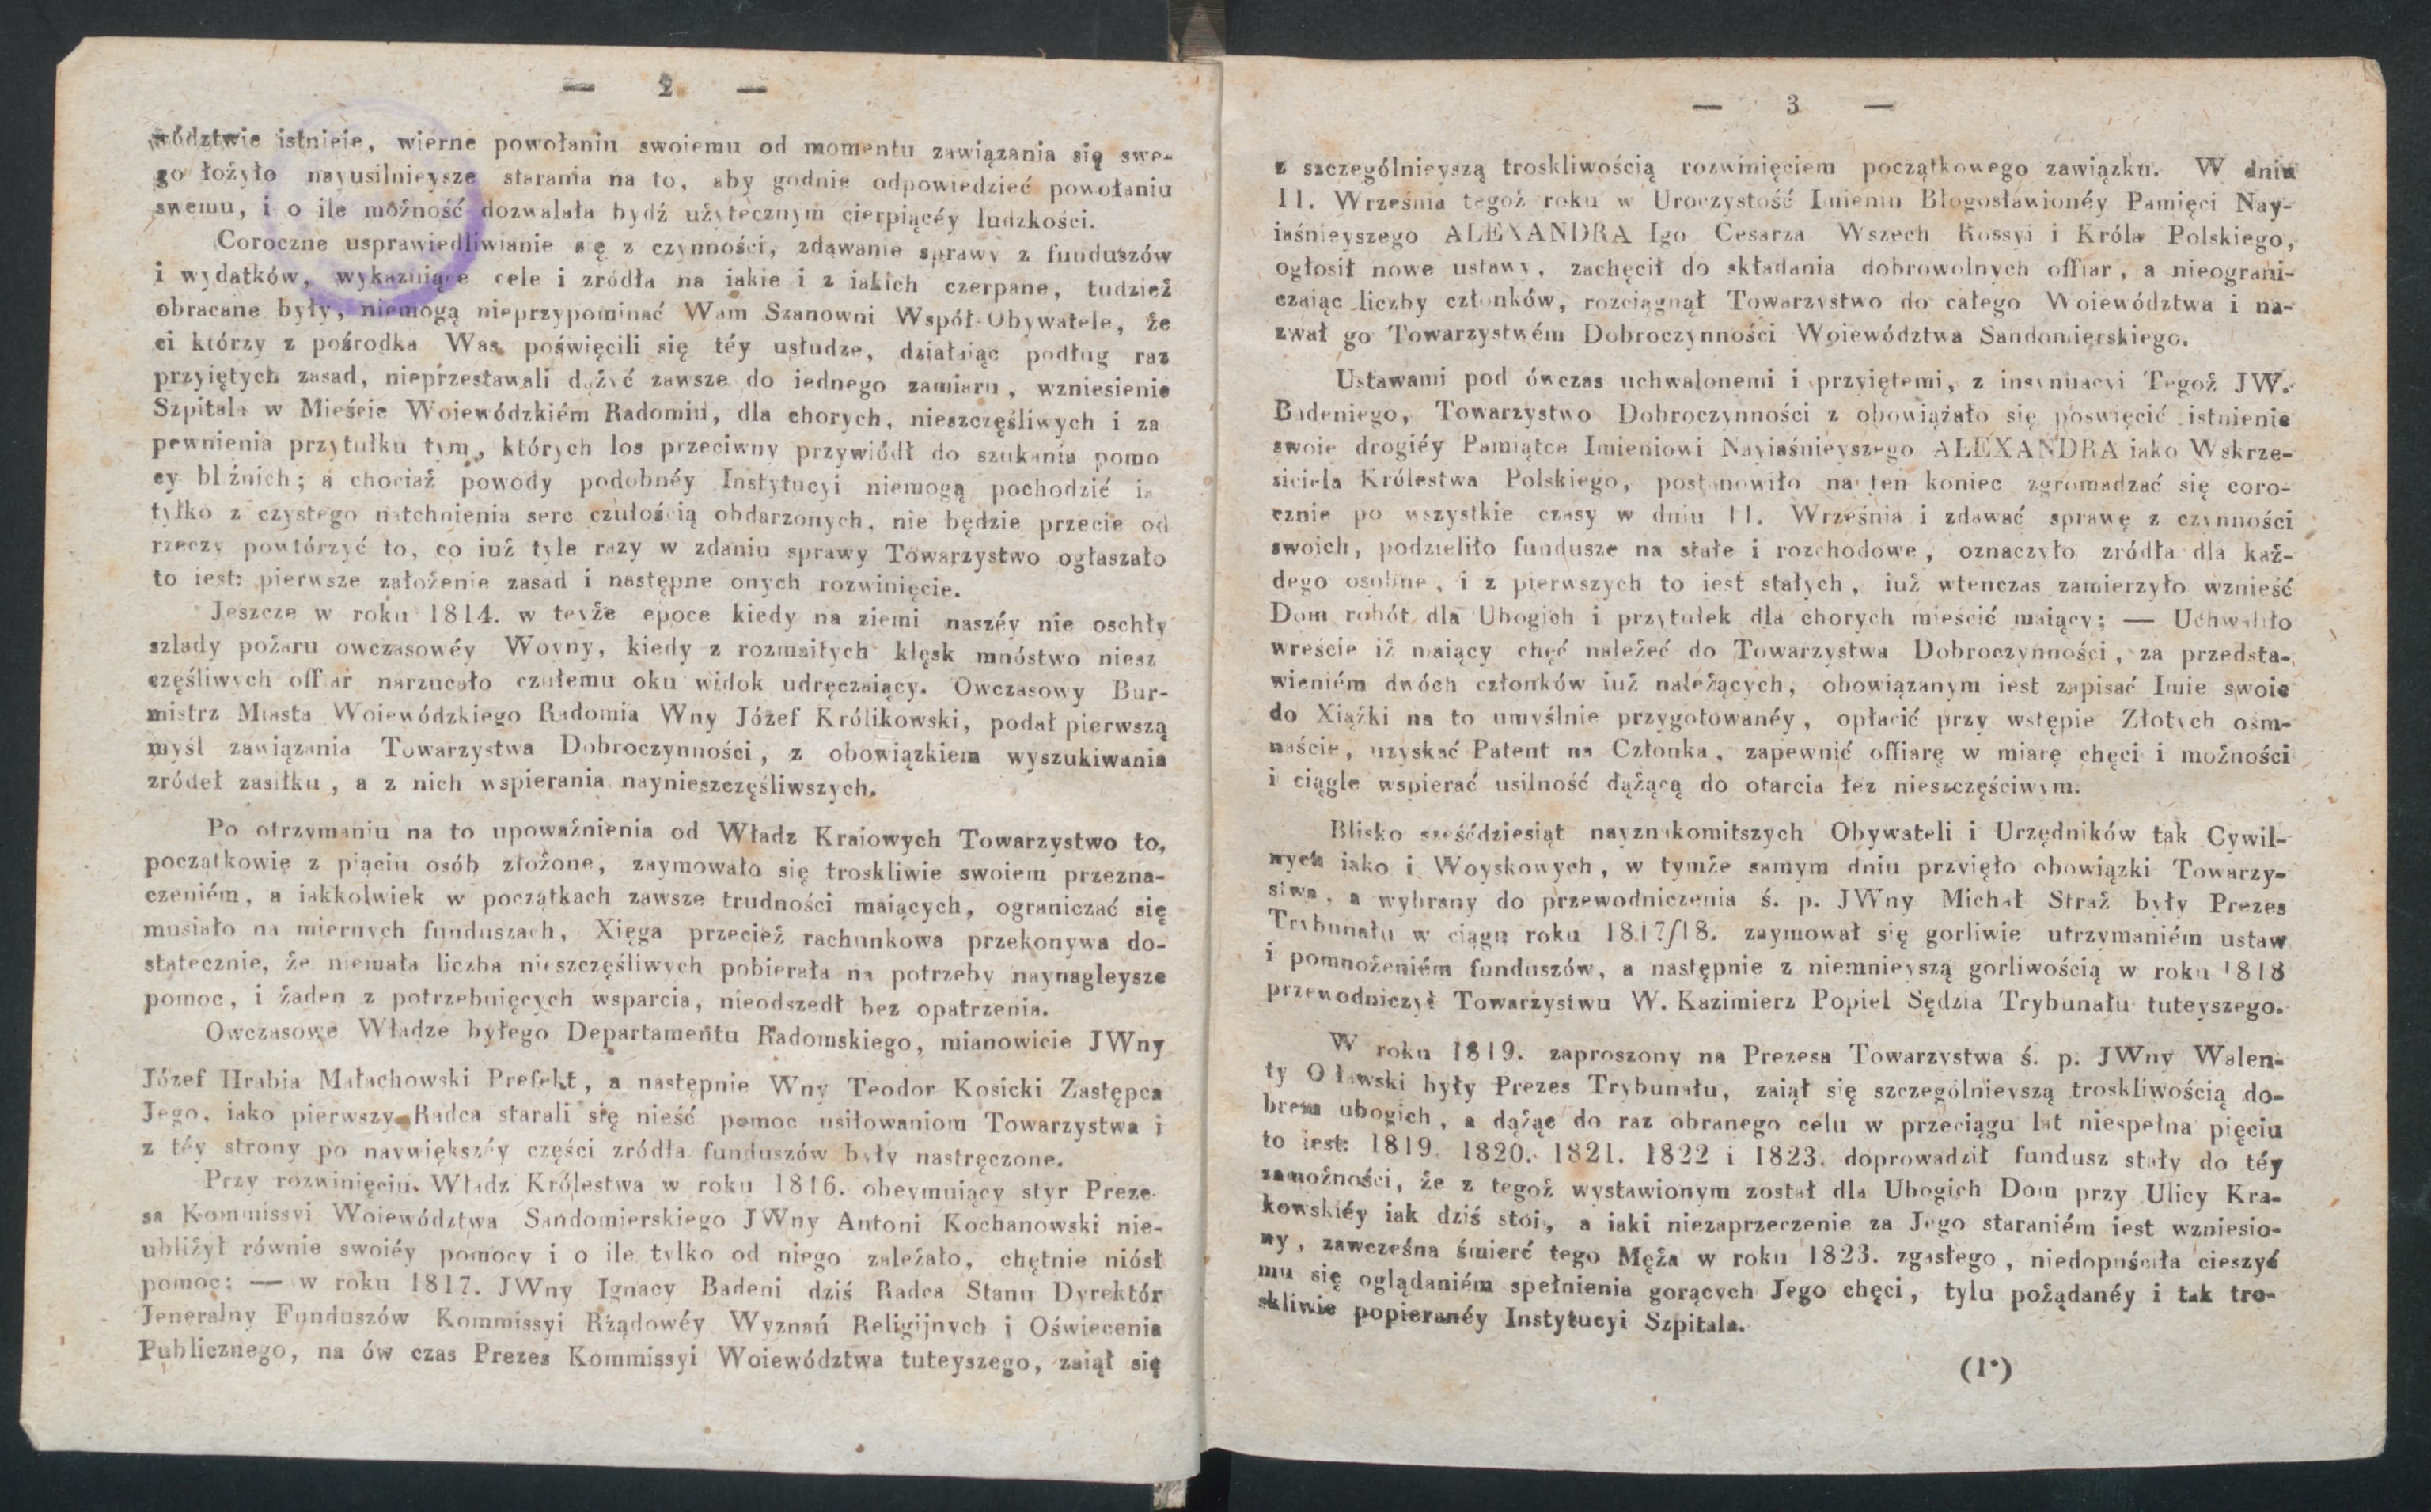 — 2 —
wództwie istnieie, wierne powołaniu swoiemu od momentu zawiązania się swe-
go łożyło nayusilnieysze starania na to, aby godnie odpowiedzieć powołaniu
swemu, i o ile możność dozwalała bydź użytecznym cierpiącéy ludzkości.
Coroczne usprawiedliwianie się z czynności, zdawanie sprawy z funduszów
i wydatków, wykazuiące cele i zródła na iakie i z iakich czerpane, tudzież
obracane były, niemogą nieprzypominać Wam Szanowni Współ-Obywatele, że
ci którzy z pośrodka Was poświęcili się téy usłudze, działaiąc podług raz
przyiętych zasad, nieprzestawali dążyć zawsze do iednego zamiaru, wzniesienie
Szpitala w Mieście Woiewódzkiém Radomiu, dla chorych, nieszczęśliwych i za
pewnienia przytułku tym, których los przeciwny przywiódł do szukania pomo
cy bliźnich; a chociaż powody podobnéy Instytucyi niemogą pochodzić i
tylko z czystego natchnienia serc czułością obdarzonych, nie będzie przecie od
rzeczy powtórzyć to, co iuż tyle razy w zdaniu sprawy Towarzystwo ogłaszało
to iest: pierwsze założenie zasad i następne onych rozwinięcie.
Jeszcze w roku 1814. w teyże epoce kiedy na ziemi naszéy nie oschły
szlady pożaru owczasowéy Woyny, kiedy z rozmaitych klęsk mnóstwo niesz
częśliwych offiar narzucało czułemu oku widok udręczaiący. Owczasowy Bur-
mistrz Miasta Woiewódzkiego Radomia Wny Józef Królikowski, podał pierwszą
myśl zawiązania Towarzystwa Dobroczynności, z obowiązkiem wyszukiwania
zródeł zasiłku, a z nich wspierania naynieszczęśliwszych.
Po otrzymaniu na to upoważnienia od Władz Kraiowych Towarzystwo to,
początkowie z piąciu osób złożone, zaymowało się troskliwie swoiem przezna-
czeniém, a iakkolwiek w początkach zawsze trudności maiących, ograniczać się
musiało na miernych funduszach, Xięga przecież rachunkowa przekonywa do-
statecznie, że niemała liczba nieszczęśliwych pobierała na potrzeby naynagleysze
pomoc, i żaden z potrzebuięcych wsparcia, nieodszedł bez opatrzenia.
Owczasowe Władze byłego Departamentu Radomskiego, mianowicie JWny
Józef Hrabia Małachowski Prefekt, a następnie Wny Teodor Kosicki Zastępca
Jego, iako pierwszy Radca starali się nieść pomoc usiłowaniom Towarzystwa i
z téy strony po naywiększéy części zródła funduszów były nastręczone.
Przy rozwinięciu Władz Królestwa w roku 1816. obeymuiący styr Preze-
sa Kommissyi Woiewództwa Sandomierskiego JWny Antoni Kochanowski nie-
ubliżył równie swoiéy pomocy i o ile tylko od niego zależało, chętnie niósł
pomoc; — w roku 1817. JWny Ignacy Badeni dziś Radca Stanu Dyrektór
Jeneralny Funduszów Kommissyi Rządowéy Wyznań Religijnych i Oświecenia
Publicznego, na ów czas Prezes Kommissyi Woiewództwa tuteyszego, zaiął się
— 3 —
z szczególnieyszą troskliwością rozwinięciem początkowego zawiązku. W dniu
11. Września tegoż roku w Uroczystość Imienin Błogosławionéy Pamięci Nay-
iaśnieyszego ALEXANDRA Igo Cesarza Wszech Rossyi i Króla Polskiego,
ogłosił nowe ustawy, zachęcił do składania dobrowolnych offiar, a nieograni-
czaiąc liczby członków, rozciągnął Towarzystwo do całego Woiewództwa i na-
zwał go Towarzystwém Dobroczynności Woiewództwa Sandomierskiego.
Ustawami pod ówczas uchwalonemi i przyiętemi, z insynuacyi Tegoż JW.
Badeniego, Towarzystwo Dobroczynności z obowiązało się poswięcić istnienie
swoie drogiéy Pamiątce Imieniowi Nayiaśnieyszego ALEXANDRA iako Wskrze-
siciela Królestwa Polskiego, postanowiło na ten koniec zgromadzać się coro-
cznie po wszystkie czasy w dniu 11. Września i zdawać sprawę z czynności
swoich, podzieliło fundusze na stałe i rozchodowe, oznaczyło zródła dla każ-
dego osobne, i z pierwszych to iest stałych, iuż wtenczas zamierzyło wznieść
Dom robót dla Ubogich i przytułek dla chorych mieścić maiący; — Uchwaliło
wreście iż maiący chęć należeć do Towarzystwa Dobroczynności, za przedsta-
wieniém dwóch członków iuż należących, obowiązanym iest zapisać Imie swoie
do Xiążki na to umyślnie przygotowanéy, opłacić przy wstępie Złotych ośm-
naście, uzyskać Patent na Członka, zapewnić offiarę w miarę chęci i możności
i ciągle wspierać usilność dążącą do otarcia łez nieszczęściwym.
Blisko sześćdziesiąt nayznakomitszych Obywateli i Urzędników tak Cywil-
nych iako i Woyskowych, w tymże samym dniu przyięło obowiązki Towarzy-
stwa, a wybrany do przewodniczenia ś. p. JWny Michał Straż były Prezes
Trybunału w ciągu roku 1817/18. zaymował się gorliwie utrzymaniém ustaw
i pomnożeniém funduszów, a następnie z niemnieyszą gorliwością w roku 1818
przewodniczył Towarzystwu W. Kazimierz Popiel Sędzia Trybunału tuteyszego.
W roku 1819. zaproszony na Prezesa Towarzystwa ś. p. JWny Walen-
ty Oławski były Prezes Trybunału, zaiął się szczególnieyszą troskliwością do-
brem ubogich, a dążąc do raz obranego celu w przeciągu lat niespełna pięciu
to iest: 1819. 1820. 1821. 1822 i 1823. doprowadził fundusz stały do téy
zamożności, że z tegoż wystawionym został dla Ubogich Dom przy Ulicy Kra-
kowskiéy iak dziś stoi, a iaki niezaprzeczenie za Jego staraniém iest wzniesio-
ny, zawcześna śmierć tego Męża w roku 1823. zgasłego, niedopuściła cieszyć
mu się oglądaniém spełnienia gorących Jego chęci, tylu pożądanéy i tak tro-
skliwie popieranéy Instytucyi Szpitala.
(1*)